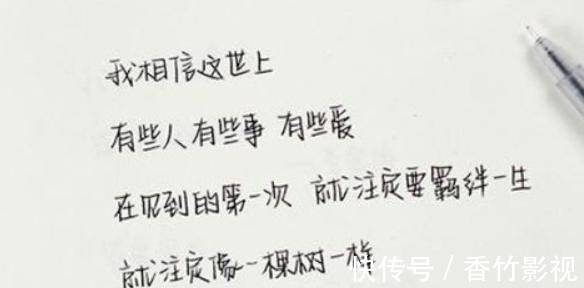 我相信这世上
有些人有些事 有些爱
在见到的第一次 就注定要羁绊一生
就注定像一棵树一样
快传号 / 香竹影视